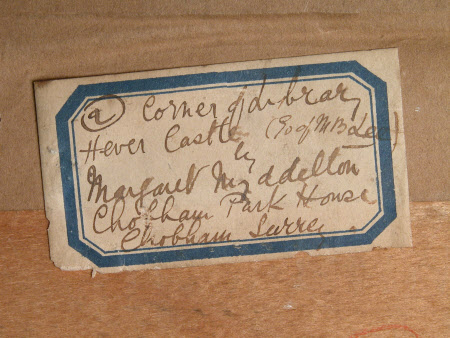 (a) Corner of Library
Hever Castle
by
Margaret Myddelton
Chobham Park House
Chobham Surrey